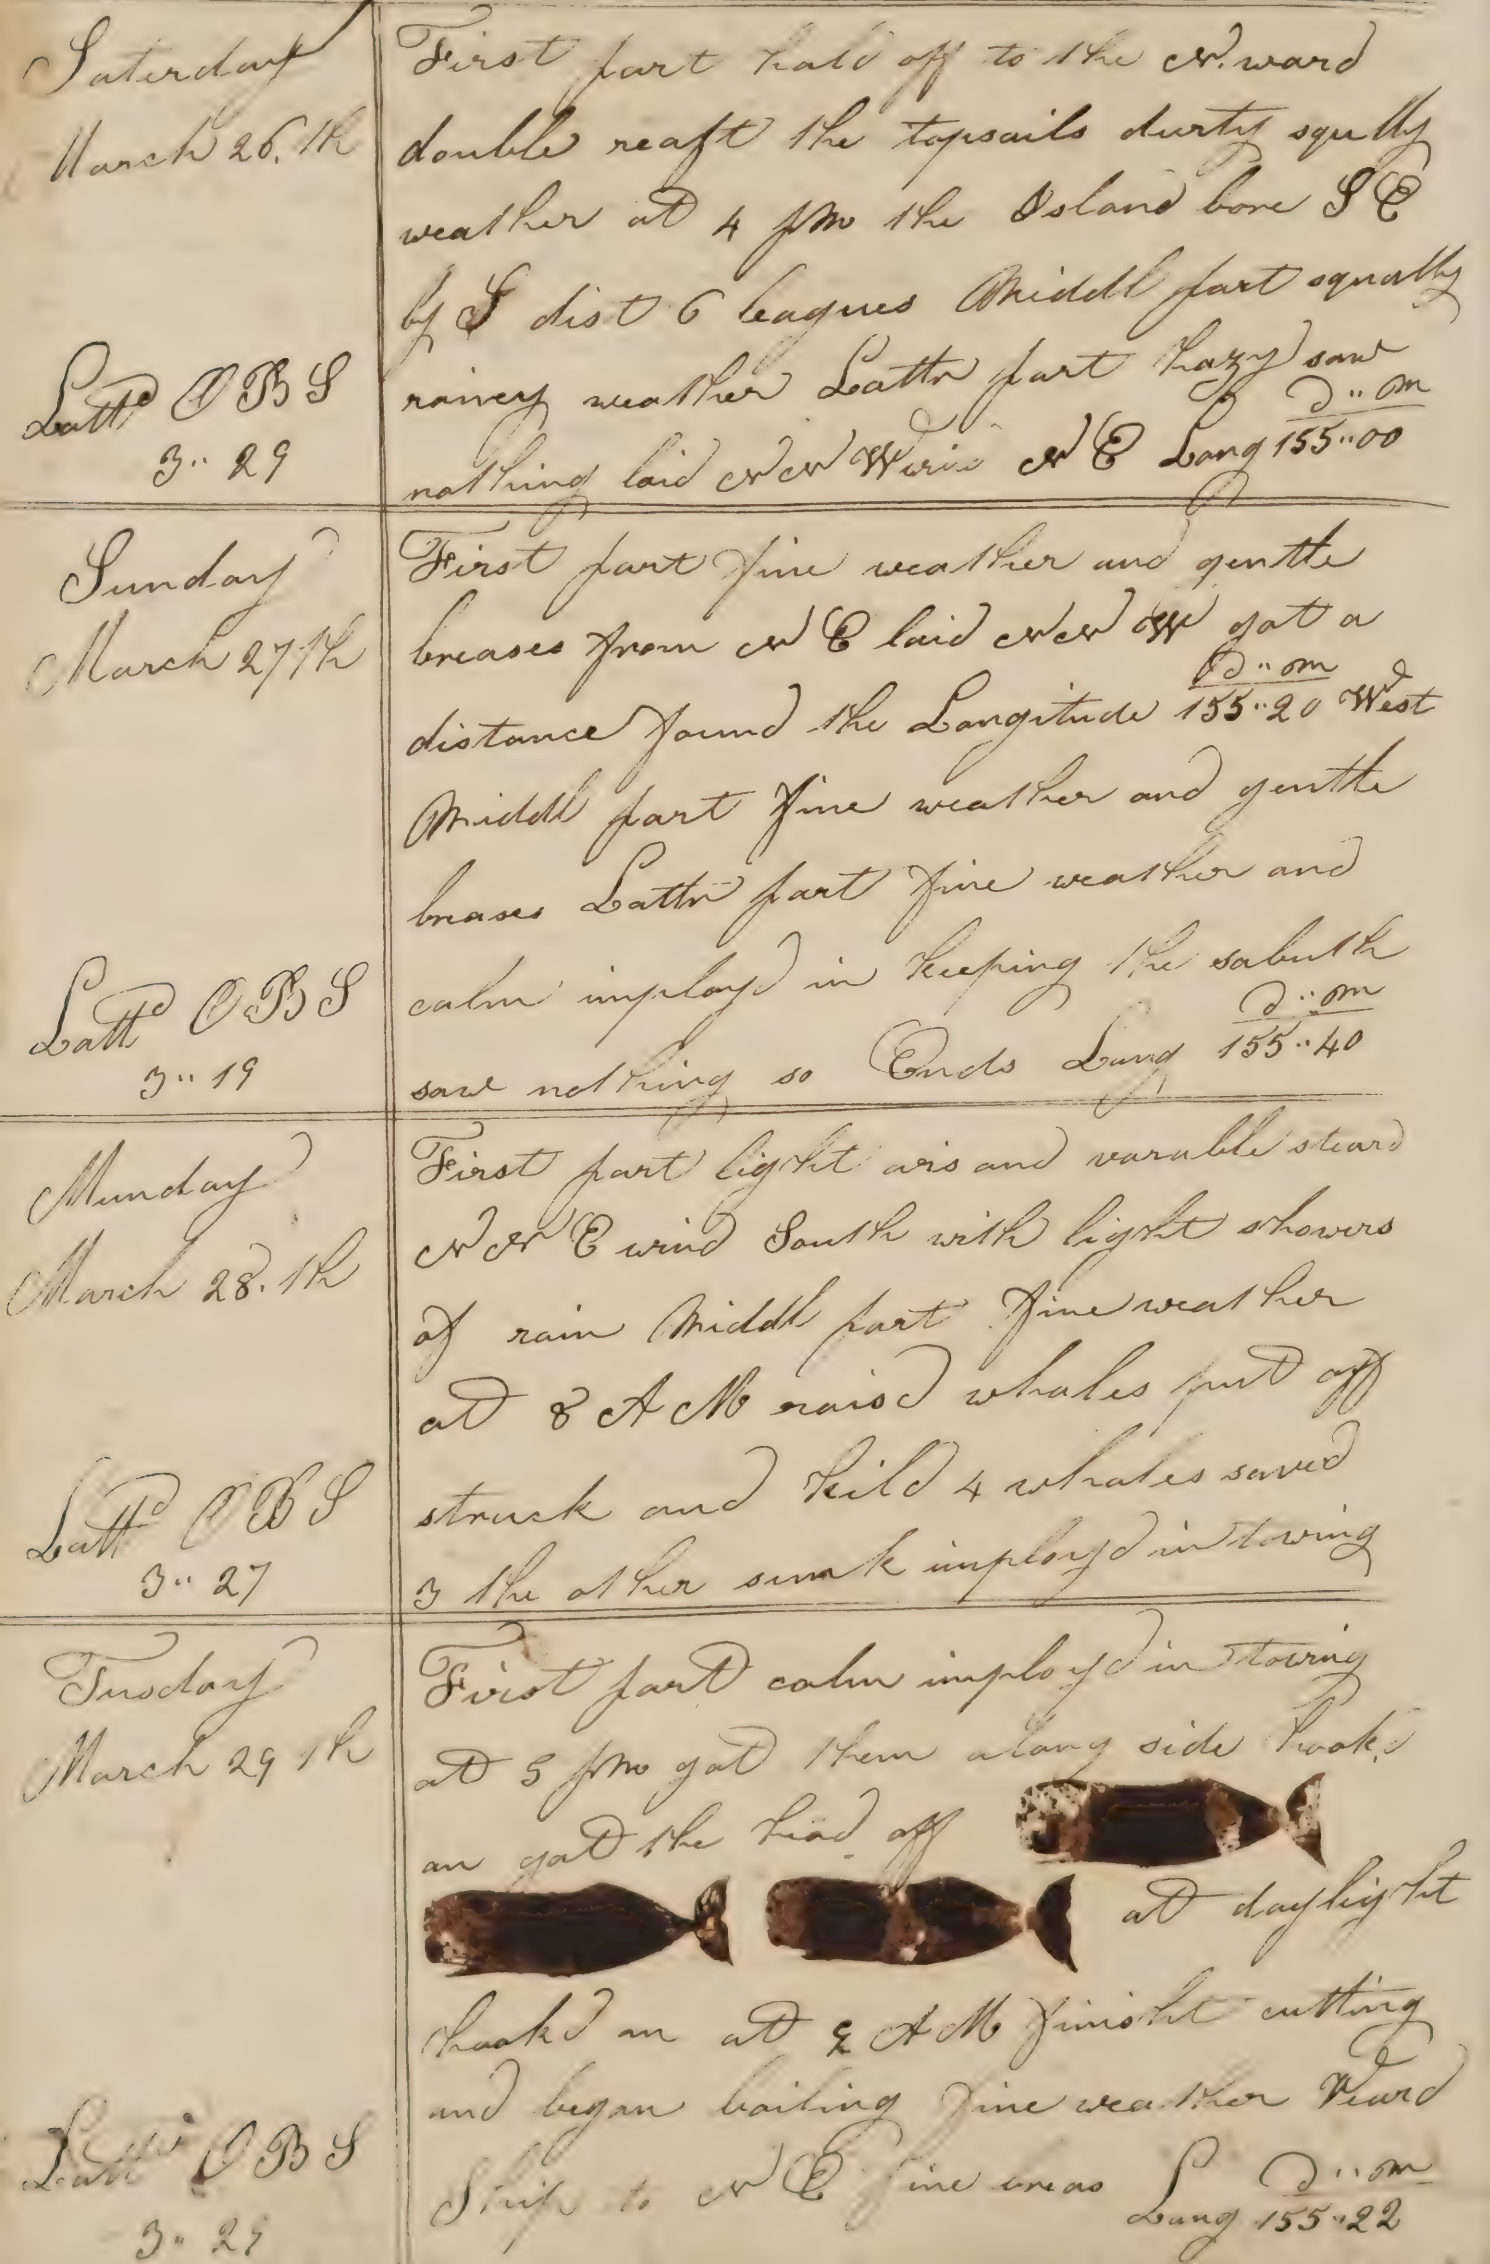 Saterday
March 26.th
Lattd OBS
3.. 29
First part hald off to the N.ward
double reaft the topsails durty sqully
weather at 4 pm the Island bore S E
by S dist 6 leagues Middl part squally
rainey weather Lattr part hazy saw
nothing laid N N W wind N E Long
D..m
155..00
Sunday
March 27th
Lattd OBS
3.. 19
First part fine weather and gentle
breases from N E laid N N W got a
distance found the Longitude
D..m
155..20 West
Middl part fine weather and gentle
breases Lattr part fine weather and
calm imployd in keeping the sabuth
saw nothing so Ends Lung
D..m
155..40
Munday
March 28.th
Lattd OBS
3.. 27
First part light airs and varable steard
N N E wind South with light showers
of rain Middl part fine weather
at 8 A M raisd whales put off
struck and kild 4 whales saved
3 the other sunk imployd in towing
Tusday
March 29 th
OBS
First part calm imployd in towing
at 5 pm got them along side hookd
on got the head off
at daylight
hookd on at A M finisht cutting
and began boiling fine weather
Ship to N E fine breas Lung
D..m
155..22